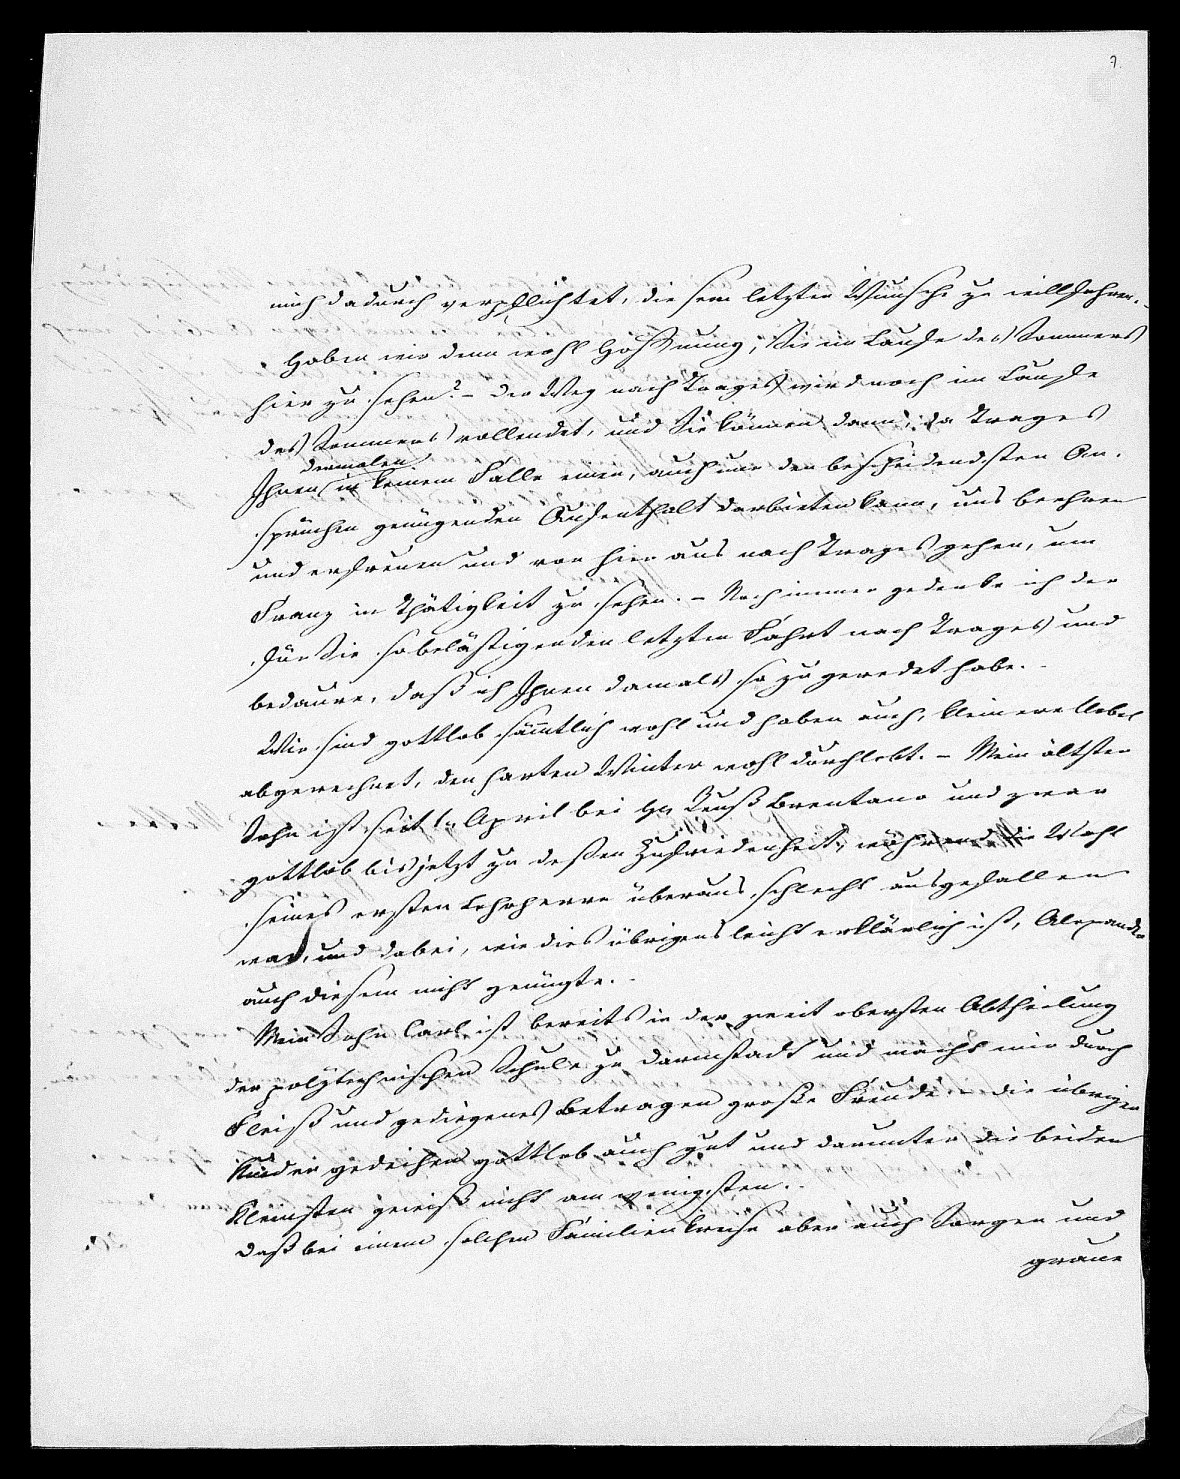 7.
mich dadurch verpflichtet, diesem letzten Wunsche zu willfahren. -
Haben wir denn wohl Hoffnung, Sie im Laufe des Sommers
hier zu sehen? - Der Weg nach Trages wird noch im Laufe
des Sommers vollendet, und Sie können dann, da Trages
dermalen
Ihnen in keinem Falle einen, auch nur den bescheidendsten An-
sprüchen genügenden Aufenthalt darbieten kann, uns beehren
und erfreuen und von hier aus nach Trages gehen, um
Franz in Thätigkeit zu sehen. - Noch immer gedenke ich der
für Sie so belästigenden letzten Fahrt nach Trages und
bedaure, daß ich Ihnen damals so zugeredet habe. -
Wir sind gottlob sämtlich wohl und haben auch, kleinere Uebel
abgerechnet, den harten Winter wohl durchlebt. - Mein ältester
Sohn ist seit 1n April bei Hn Brentano und zwar
gottlob bis jetzt zu deßen Zufriedenheit, während die Wahl
seines ersten Lehrherrn überaus schlecht ausgefallen
war, und dabei, wie dies übrigens leicht erklärlich ist, Alexander
auch diesem nicht genügte. -
Mein Sohn Carl ist bereits in der zweit obersten Abtheilung
der polytechnischen Schule zu Darmstadt und macht mir durch
Fleiß und gediegenes Betragen große Freude. - Die übrigen
Kinder gedeihen gottlob auch gut und darunter die beiden
Kleinsten gewiß nicht am wenigsten. -
Daß bei einem solchen Familienkreise aber auch Sorgen und
graue